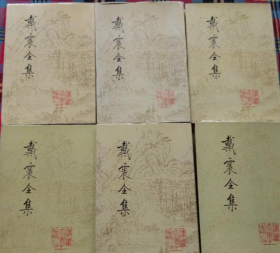 戴震全集
戴震全集
戴震全集
戴震全集
戴震全集
戴震全集